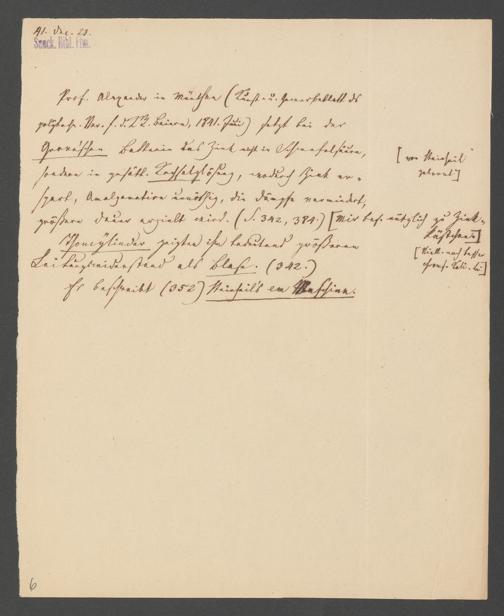 41. Dec. 23.
Senck. Bibl. Ffm.
Prof. Alexander in München (Kunst- u. Gewerbeblatt ds
polytech. Ver. f. d. K. Baiern, 1841. Juni) setzt bei der
Grove'schen Batterie das Zink nicht in Schwefelsäure,
sondern in gesätt. Kochsalzlösung, wodurch Zink er-
spart, Amalgamation unnöthig, die Dämpfe vermindert,
[von Steinheil
gelernt]
größere Dauer erzielt wird. (S. 342, 384.) [Mir bes. nützlich zu Zink-
Kästchen]
Thoncylinder zeigten ihm bedeutend größeren
Leitungswiderstand als Blase. (342.)
[Viell. noch besser
]
Er beschreibt (352) Steinheil's em Maschine.
6